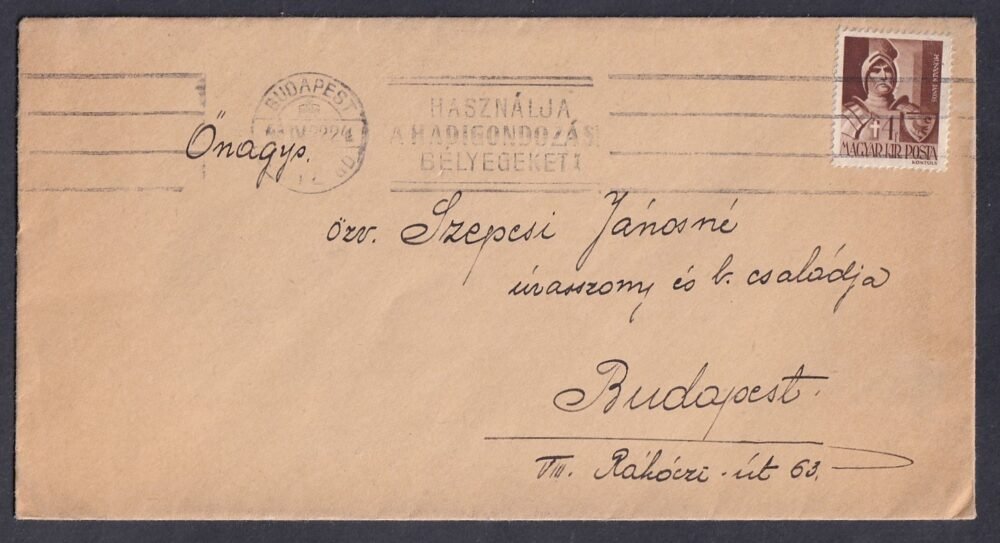 BUDAPEST
HASZNÁLJA
A HADIGONDOZÁSI
BÉLYEGEKET!
HUNYADI JÁNOS
4f
MAGYAR KIR. POSTA
KONTULY
Önagys.
özv. Szepesi Jánosné
úrasszony és b. családja
Budapest.
VIII. Rákóczi-út 63.